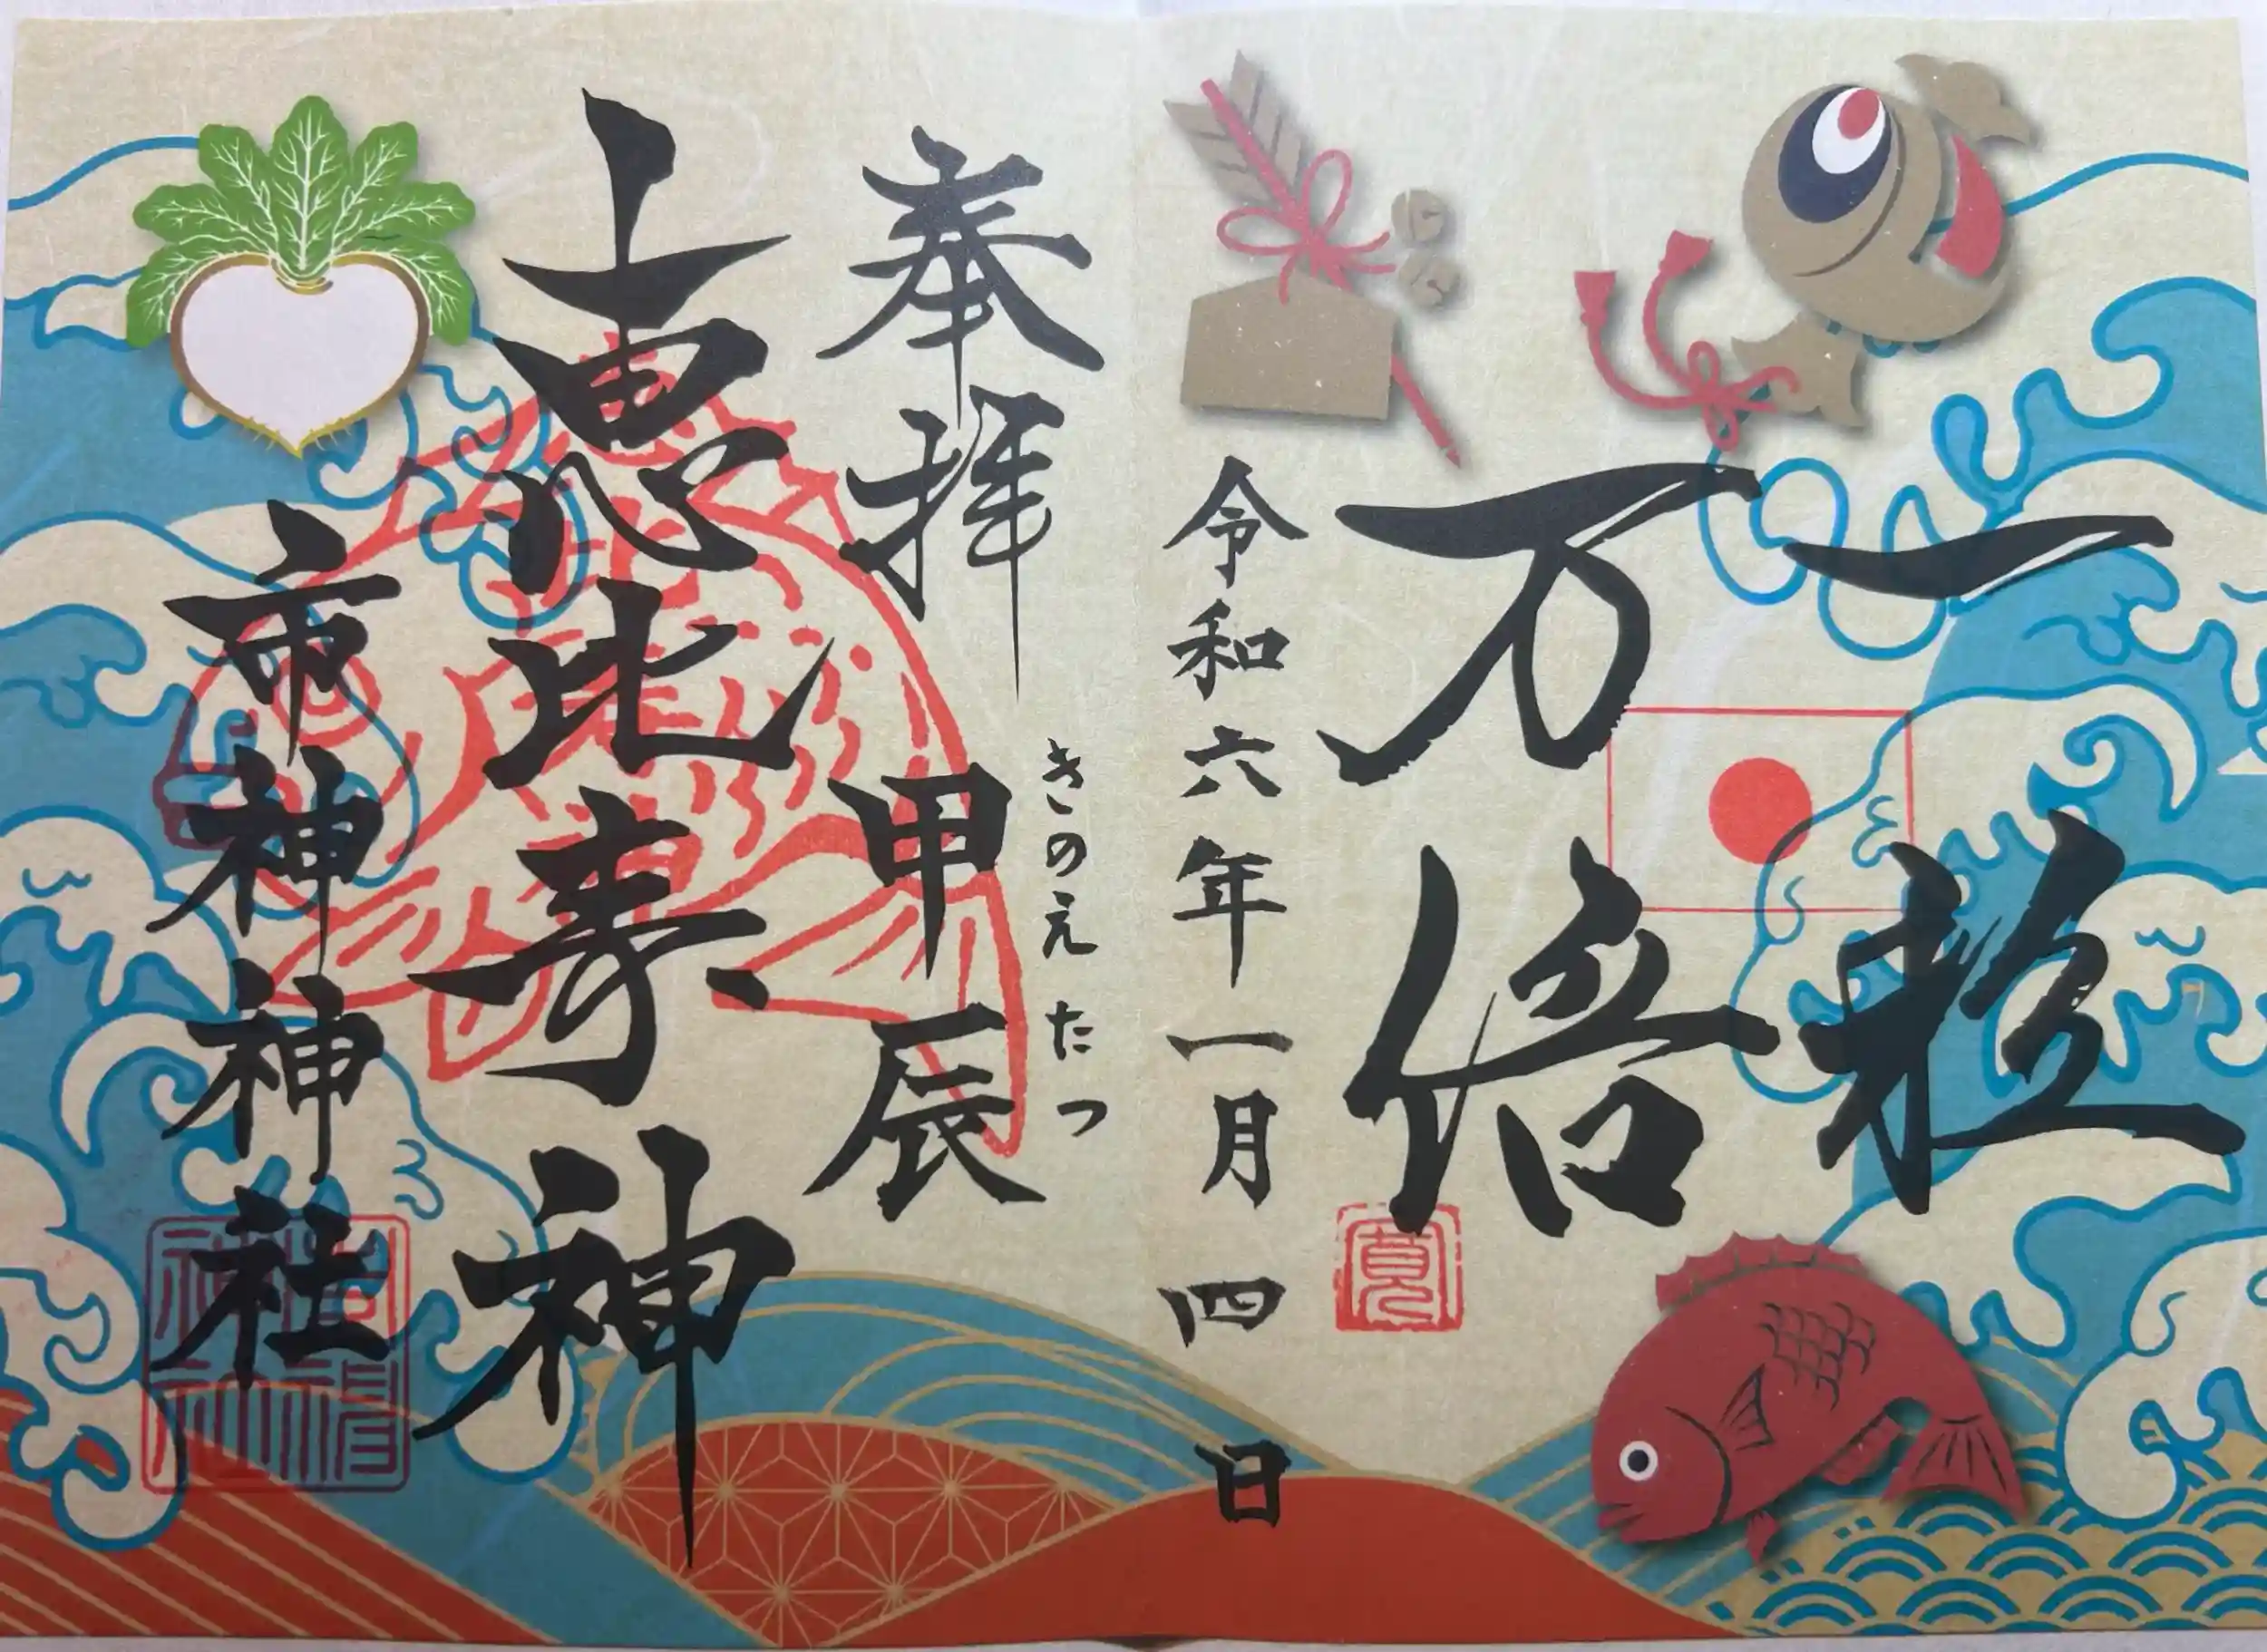 一粒
万倍
令和六年一月四日
きのえ たつ
奉拝 甲辰
恵比寿神
市神神社